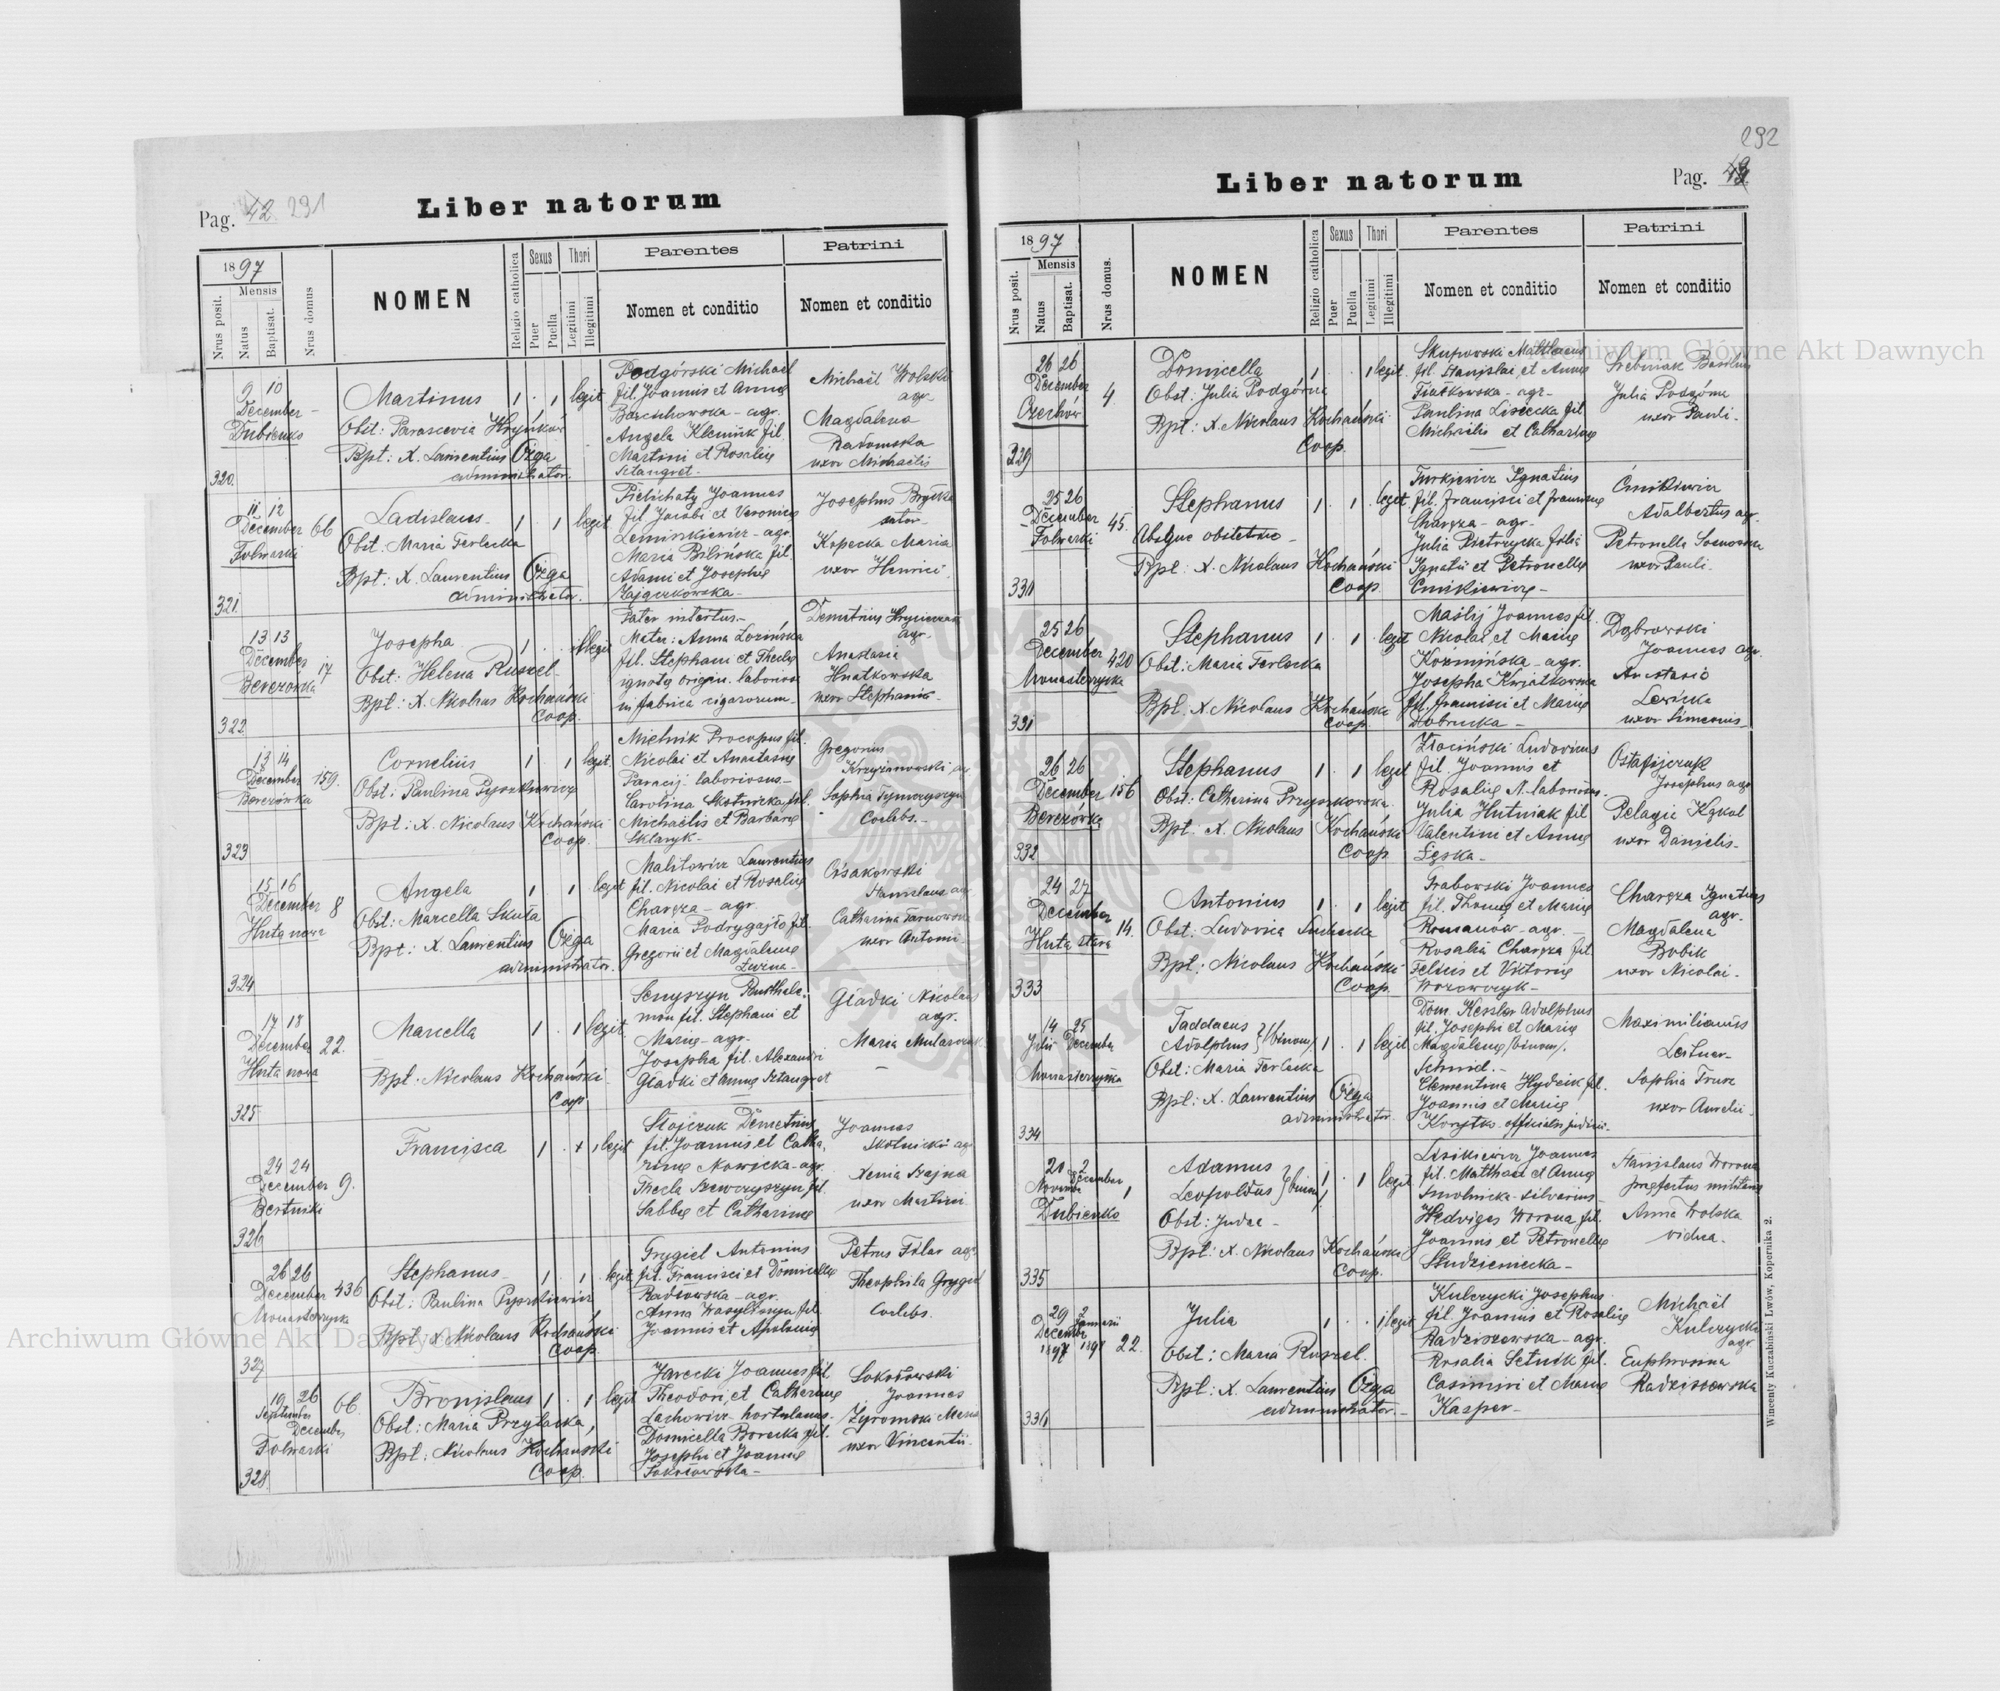 292
Pag. 42 291
Liber natorum
1897
Nrus posit.
Mensis
Natus
Baptisat.
Nrus domus
NOMEN
Religio catholica
Sexus
Puer
Puella
Thori
Legitimi
Illegitimi
Parentes
Nomen et conditio
Patrini
Nomen et conditio
9 10
December
Dubienko
320.
Martinus 1 . 1 legit
Obst: Parascevia Hryńków
Bpt: X. Laurentius Ożga
administrator.
Podgórski Michael
fil. Joannis et Annæ
agr.
Angela Klemik fil.
Martini et Rosaliæ
Sztangret.
Michaël Wolski
agr.
Magdalena
Radomska
uxor Michaelis
11 12
December 66
Folwarki
321.
Ladislaus 1 1 legit
Obst. Maria Terlecka
Bpt: X. Laurentius Ożga
administrator.
Pielichaty Joannes
fil. Jacobi et Veronicæ
agr.
Maria Bilińska fil.
Adami et Josephæ
Zajączkowska
Josephus
sutor
Kopecka Maria
uxor Henrici.
13 13
December 17
Berezówka
322
Josepha 1 . illegit
Obst: Helena Ruszel
Bpt: X. Nicolaus Kochański
Coop.
Pater incertus
Mater: Anna Łozińska
fil. Stephani et Theclæ
ignotæ origin. laboriosa
in fabrica cigarorum
Demetrius
agr.
Anastasia
Hnatkowska
uxor Stephani
13 14
December 159.
Berezówka
323
Cornelius 1 . 1 legit
Obst: Paulina Pyszkiewicz
Bpt: X. Nicolaus Kochański
Coop.
Mielnik Procopus fil.
Nicolai et Anastasiæ
laboriosus
Carolina Skotnicka fil.
Michaëlis et Barbaræ
Sklaryk
Gregorius
Krzyżanowski agr
Sophia Tymczyszyn
Coelebs.
15 16
December 8
Huta nova
324
Angela 1 . 1 legit
Obst: Marcella Skuta
Bpt: X. Laurentius Ożga
administrator.
Malitowicz Laurentius
fil. Nicolai et Rosaliæ
Charęza - agr.
Maria Podrygajło fil.
Gregorii et Magdalenæ
Osakowski
Stanislaus agr
Catharina Tarnowska
uxor Antonii
17 18
December 22.
Huta nova
325
Marcella 1 . 1 legit
Bpt. Nicolaus Kochański
Coop
Senyszyn
fil. Stephani et
Mariæ - agr.
Josepha fil. Alexandri
Gladki et Annæ Sztangret
Gladki Nicolaus
agr.
Maria
24 24
December 9.
Bertniki
326
Francisca 1 . legit
Stojczuk Demetrius
fil. Joannis et Catha
rinæ Nowicka - agr.
Thecla Szewczyszyn fil.
Sabbæ et Catharinæ
Joannes
Skotnicki agr
Xenia Szajna
uxor Martini
26 26
December 436
Monasterzyska
327
Stephanus 1 . 1 legit
Obst: Paulina Pyszkiewicz
Bpt. X Nicolaus Kochański
Coop.
Grygiel Antonius
fil. Francisci et Domicellæ
agr.
Anna Wasylczyn fil.
Joannis et Apolaniæ
Petrus Filar agr
Theophila Grygiel
Coelebs.
19 26
September
December 66.
Folwarki
328.
Bronislaus 1 . 1 legit
Obst: Maria Przyłacka,
Bpt: Nicolaus Kochański
Coop.
Jarecki Joannes fil
Theodori et Catharinæ
Lachowicz - hortulanus.
Domicella Borecka fil.
Josephi et Joannæ
Sokołowska
Sokołowski
Joannes
Żyromska Maria
uxor Vincentii.
Liber natorum
Pag.
1897
Nrus posit.
Mensis
Natus
Baptisat.
Nrus domus.
NOMEN
Religio catholica
Sexus
Puer
Puella
Thori
Legitimi
Illegitimi
Parentes
Nomen et conditio
Patrini
Nomen et conditio
26 26
December 4
Czechów
329
Domicella 1 . 1 legit.
Obst: Julia Podgórna
Bpt: X. Nicolaus Kochański
Coop.
Skupowski Matthaeus
fil. Stanislai et Annæ
Fiałkowska - agr.
Paulina Lisiecka fil.
Michaelis et Catharinæ
Srebniak Basilius
Julia Podgórna
uxor Pauli.
25 26
December 45.
Folwarki
330
Stephanus 1 . 1 legit.
Absque obstetrice
Bpt: X. Nicolaus Kochański
Coop.
Turkiewicz Ignatius
fil. Francisci et Franciscæ
Charęza - agr.
Julia Pietrzycka filia
Ignatii et Petronellæ
Ćmikiewicz
Ćmikiewicz
Adalbertus agr.
Petronella Sosnowska
uxor Pauli.
25 26
December 420
Monasterzyska
331
Stephanus 1 . 1 legit
Obst: Maria Terlecka
Bpt. X Nicolaus Kochański
Coop.
Maślij Joannes fil.
Nicolai et Mariæ
Koźmińska - agr.
Josepha Kwiatkowska
fil. Francisci et Mariæ
Dobrucka
Dąbrowski
Joannes agr.
Anastasia
Lesicka
uxor Simeonis
26 26
December 156
Berezówka
332
Stephanus 1 . 1 legit
Obst: Catharina Przyszkowska
Bpt: X. Nicolaus Kochański
Coop.
Złociński Ludovicus
fil. Joannis et
Rosaliæ N. laboriosus
Julia Hutniak fil
Valentini et Annæ
Sęska
Ostafijczuk
Josephus agr
Pelagia Kąkol
uxor Danielis
24 27
December 14.
Huta stara
333
Antonius 1 . 1 legit
Obst: Ludovica Suchecka
Bpt: Nicolaus Kochański
Coop.
Grabowski Joannes
fil. Thomæ et Mariæ
Romanów - agr.
Rosalia Charęza fil
Felicis et Victoriæ
Wozowczyk
Charęza Ignatius
agr.
Magdalena
Bobik
uxor Nicolai
14 25
Julii December
Monasterzyska
334
Taddaeus
Adolphus } (binom) 1 . 1 legit
Obst: Maria Terlecka
Bpt: X. Laurentius Ożga
administrator.
Dom. Kessler Adolphus
fil. Josephi et Mariæ
Magdalenæ (binom).
Schmid.
Clementina Hydzik fil.
Joannis et Mariæ
Korytko. officialis judic.
Maximilianus
Leitner
Sophia Trusz
uxor Aurelii
21 2
November December 1
Dubienko
335
Adamus
Leopoldus } (binom) 1 . 1 legit
Obst: Judae
Bpt: X. Nicolaus Kochański
Coop.
Lisikiewicz Joannes
fil. Matthaei et Annæ
Smolnicka - silvarius
Hedviges Worona fil.
Joannis et Petronellæ
Studzieniecka
Stanislaus Worona
Anna Wolska
vidua.
29 2
December Januarii
1897 1898 22.
336
Julia 1 . . 1 legit.
Obst: Maria Ruszel.
Bpt: X. Laurentius Ożga
administrator.
Kulczycki Josephus
fil. Joannis et Rosaliæ
Radziszewska - agr.
Rosalia Setnik fil.
Casimiri et Mariæ
Kasper
Michaël
Kulczycki
agr.
Euphrosina
Radziszewska
Wincenty Kuczabiński Lwów, Kopernika 2.
Archiwum Główne Akt Dawnych
Archiwum Główne Akt Dawnych